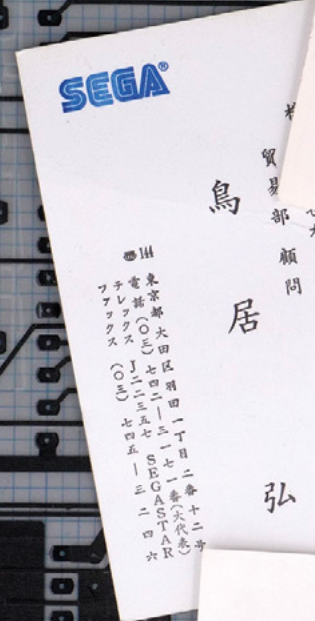 SEGA®
貿易部 顧問
鳥居 弘
〒144
東京都大田区羽田一丁目二番十二号
電話(〇三)七四二―三一七一番(大代表)
テレックス J二二三五七 SEGASTAR
ファックス (〇三) 七四五―三二四六